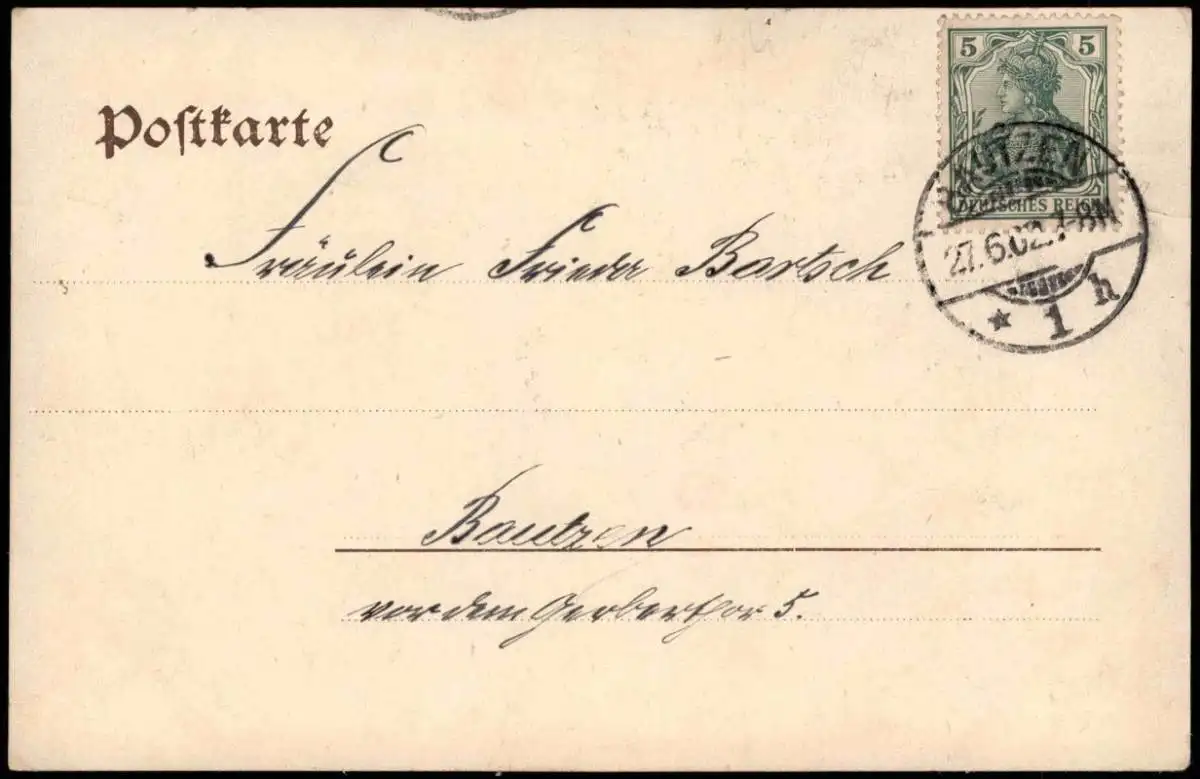 Postkarte
5 5
DEUTSCHES REICH
BAUTZEN
27.6.02. 7-8N
* 1 h
Fräulein Frieda Bartsch
Bautzen
vor dem Gerberthor 5.